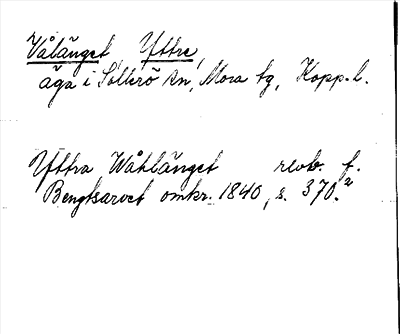 Vålänget, Yttre,
äga i Sollerö sn, Mora tg, Kopp. l.
Yttra Wåhlänget revb. f.
Bengtsarvet omkr. 1840, s. 370.²